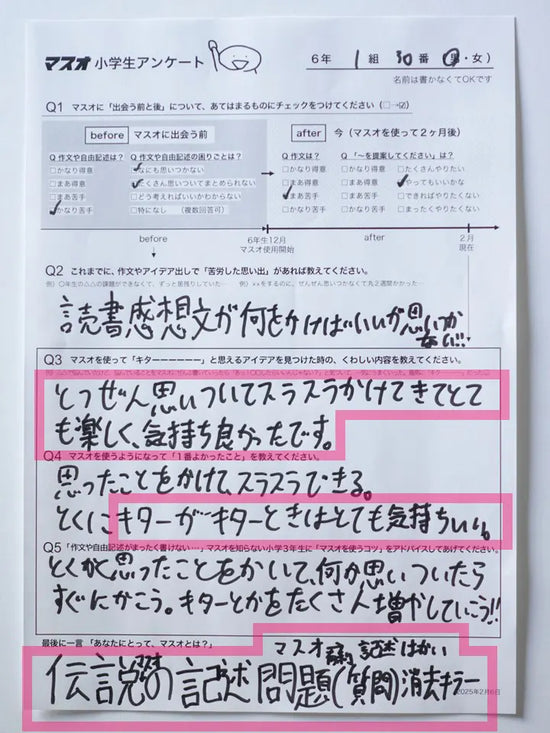 マスオ 小学生アンケート
6年 1組 30番 (男・女)
名前は書かなくてOKです
Q1 マスオに「出会う前と後」について、あてはまるものにチェックをつけてください(□→☑)
before マスオに出会う前
after 今(マスオを使って2ヶ月後)
Q 作文や自由記述は? Q 作文や自由記述の困りごとは?
Q 作文は? Q 「〜を提案してください」は?
□かなり得意 ☑なにも思いつかない □かなり得意 □たくさんやりたい
□まあ得意 ☑たくさん思いついてまとめられない □まあ得意 ☑やってもいいかな
□まあ苦手 □どう考えればいいかわからない ☑まあ苦手 □できればやりたくない
☑かなり苦手 □特になし (複数回答可) □かなり苦手 □まったくやりたくない
before 6年生12月 after 2月
マスオ使用開始 現在
Q2 これまでに、作文やアイデア出しで「苦労した思い出」があれば教えてください。
例)〇年生の△△の課題ができなくて、ずっと居残りしていた… 例)××をするのに、ぜんぜん思いつかなくて丸2週間かかった…
読書感想文が何をかけばいいか思いつか
ない!!
Q3 マスオを使って「キターーーーーー」と思えるアイデアを見つけた時の、くわしい内容を教えてください。
とつぜん思いついてスラスラかけてきてとて
も楽しく、気持ち良かったです。
Q4 マスオを使うようになって「1番よかったこと」を教えてください。
思ったことをかけて、スラスラできる。
とくにキターがキターときはとても気持ちいい。
Q5 「作文や自由記述がまったく書けない…」マスオを知らない小学3年生に「マスオを使うコツ」をアドバイスしてあげてください。
とくかと思ったことをかいて、何か思いついたら
すぐにかこう。キターとかをたくさんち増やしていこう!!
最後に一言「あなたにとって、マスオとは?」
マスオ 記述はかい
伝説の マスオ 記述問題(質問)消去キラー
2025年2月6日